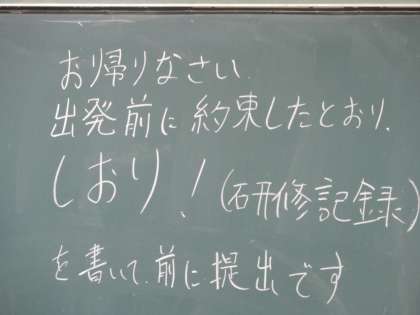 お帰りなさい.
出発前に約束したとおり、
しおり!(研修記録)
を書いて、前に提出です